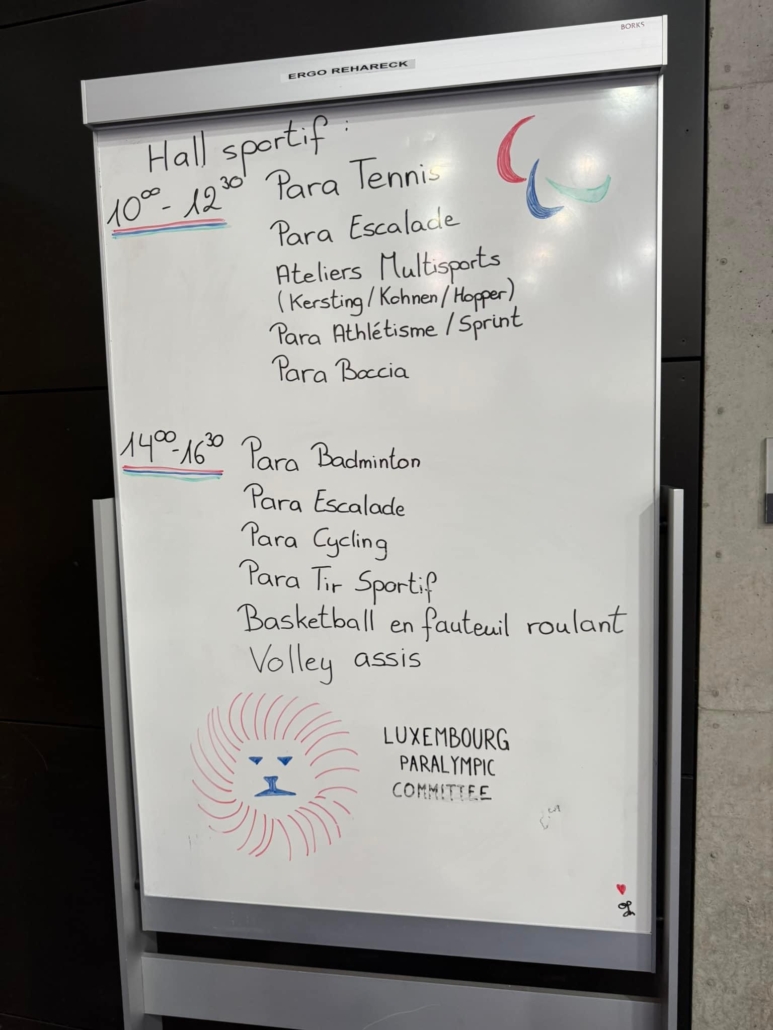 BORKS
ERGO REHARECK
Hall sportif :
10⁰⁰ - 12³⁰ Para Tennis
Para Escalade
Ateliers Multisports
(Kersting/Kohnen/Hopper)
Para Athlétisme / Sprint
Para Boccia
14⁰⁰-16³⁰ Para Badminton
Para Escalade
Para Cycling
Para Tir Sportif
Basketball en fauteuil roulant
Volley assis
LUXEMBOURG
PARALYMPIC
COMMITTEE